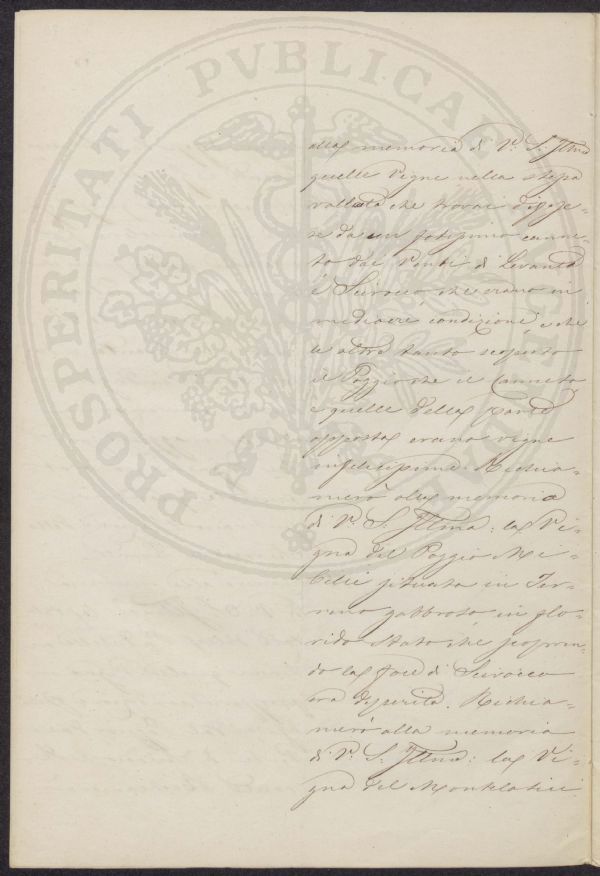 PROSPERITATI PVBLICAE AVGENDAE
alla memoria di V. S. Illma
quelle Vigne nella stessa
vallata che trovai difese-
se da un foltissimo canne-
to dai Venti di Levante
e Scirocco, che erano in
mediocre condizione, e che
le altre tanto scoperto
il Poggio che il Canneto
e quelle della parte
opposta erano vigne
infelicissime. Richia-
merò alla memoria
di V. S. Illma: la Vi-
gna del Poggio
situata in Ter-
reno gabbroso, in flo-
rido stato che scopren-
do la foce di Scirocco
era deperita. Richia-
merò alla memoria
di V. S. Illma: la Vi-
gna del